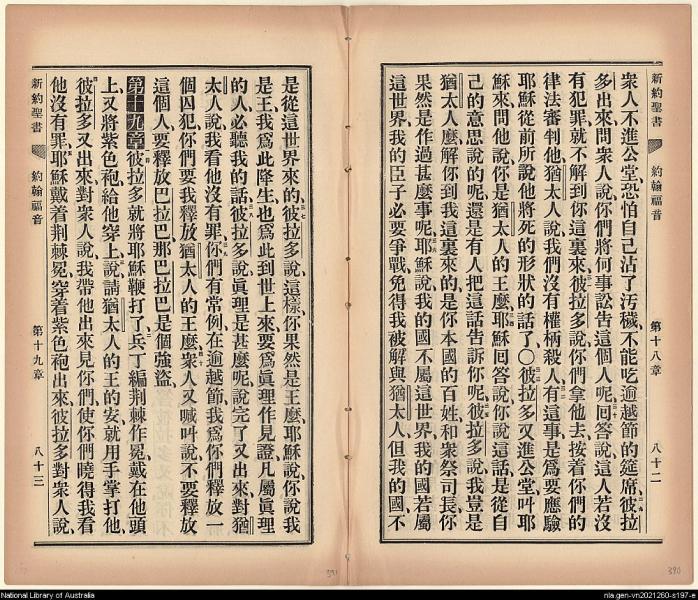 新約聖書 約翰福音 第十八章 八十二
衆人不進公堂、恐怕自己沾了汚穢、不能吃逾越節的筵席、彼拉
多出來問衆人說、你們將何事訟告這個人呢、回答說、這人若沒
有犯罪、就不解到你這裏來、彼拉多說、你們拿他去、按着你們的
律法審判他、猶太人說、我們沒有權柄殺人、有這事、是爲要應驗
耶穌從前所說他將死的形狀的話了○彼拉多又進公堂、叫耶
穌來問他說、你是猶太人的王麼、耶穌回答說、你說這話、是從自
己的意思說的呢、還是有人把這話告訴你呢、彼拉多說、我豈是
猶太人麼、解你到我這裏來的、是你本國的百姓和衆祭司長、你
果然是作過甚麼事呢、耶穌說、我的國不屬這世界、我的國若屬
這世界、我的臣子必要爭戰、免得我被解與猶太人、但我的國不
是從這世界來的、彼拉多說、這樣、你果然是王麼、耶穌說、你說我
是王、我爲此降生、也爲此到世上來、要爲眞理作見證、凡屬眞理
的人、必聽我的話、彼拉多說、眞理是甚麼呢、說完了、又出來對猶
太人說、我看他沒有罪、你們有常例、在逾越節、我爲你們釋放一
個囚犯、你們要我釋放猶太人的王麼、衆人又喊呌說、不要釋放
這個人、要釋放巴拉巴、那巴拉巴是個強盜、
第十九章 彼拉多就將耶穌鞭打了、兵丁編荆棘作冕、戴在他頭
上、又將紫色袍給他穿上、說、請猶太人的王的安、就用手掌打他、
彼拉多又出來對衆人說、我帶他出來見你們、使你們曉得我看
他沒有罪、耶穌戴着荆棘冕、穿着紫色袍出來、彼拉多對衆人說、
新約聖書 約翰福音 第十九章 八十三
391
390
National Library of Australia
nla.gen-vn2021260-s197-e